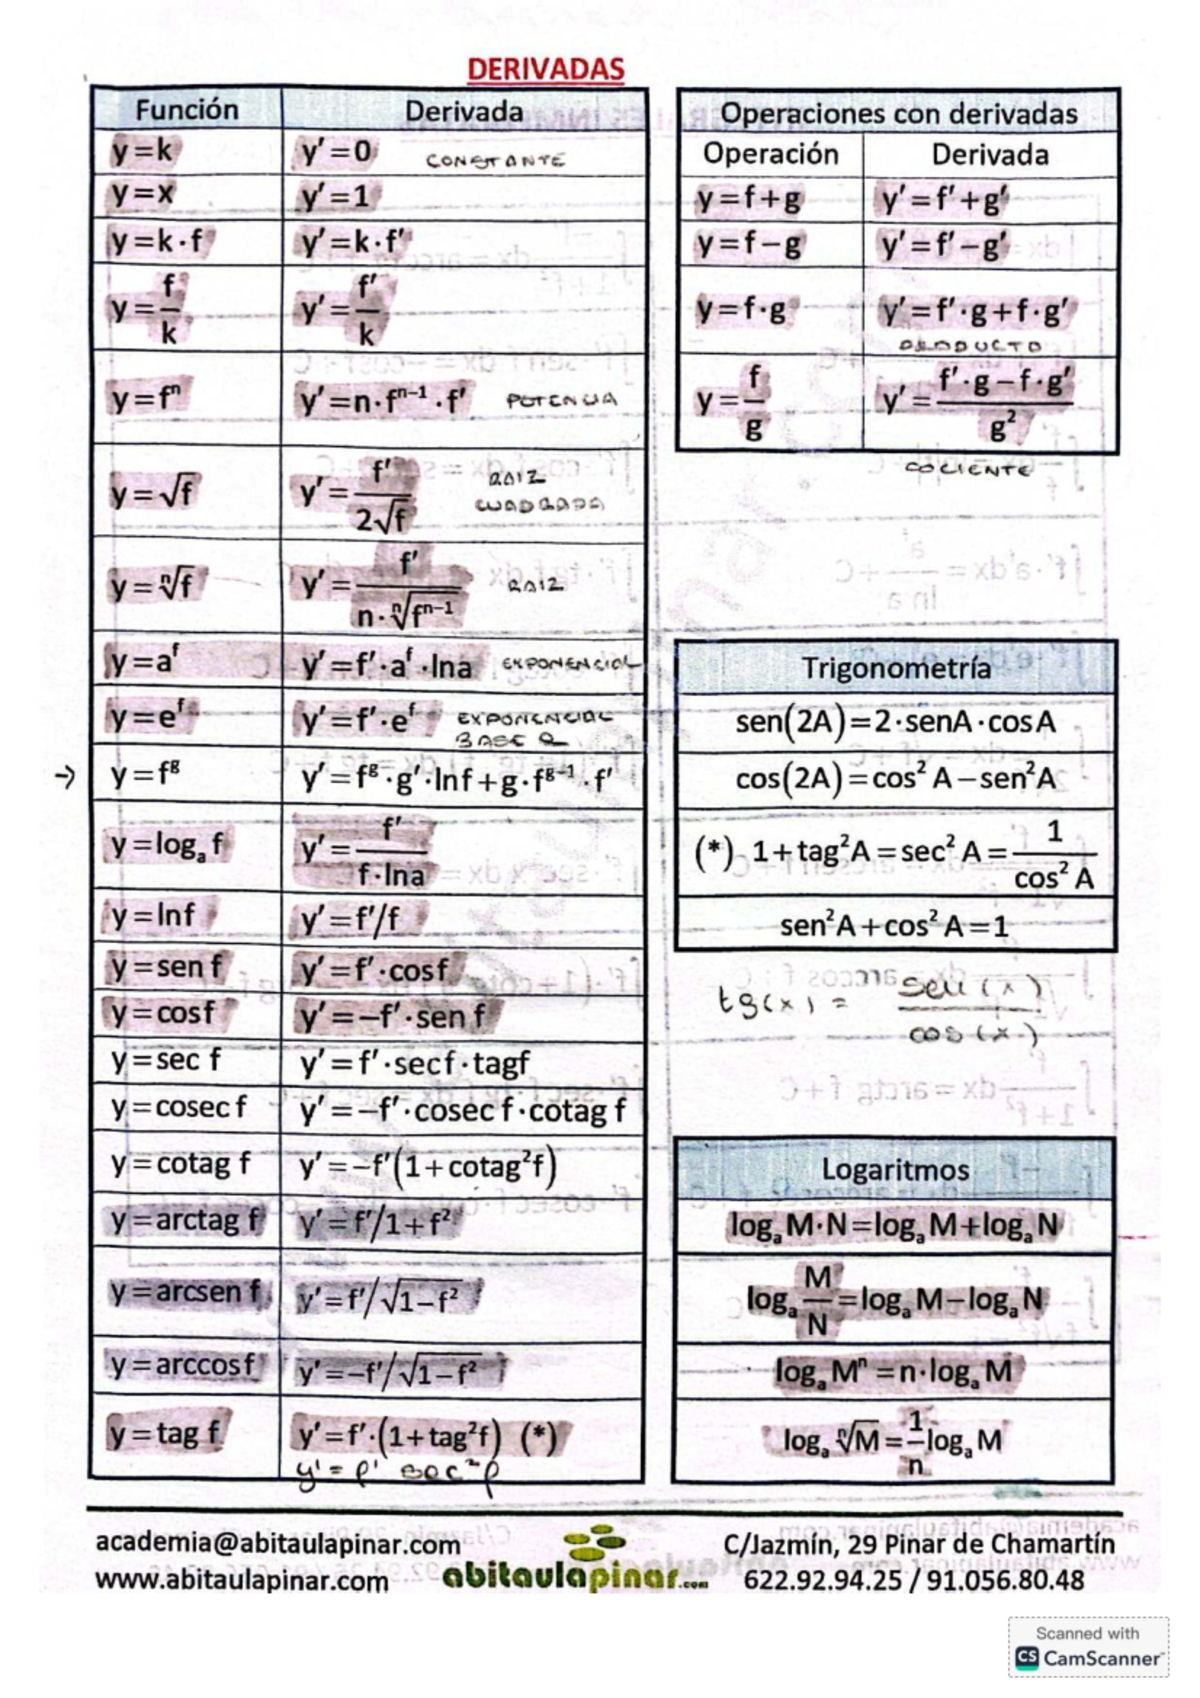 DERIVADAS
Función Derivada
y=k y'=0 CONSTANTE
y=x y'=1
y=k·f y'=k·f'
y=f/k y'=f'/k
y=fⁿ y'=n·fⁿ⁻¹·f' POTENCIA
y=√f y'=f'/2√f RAIZ
CUADRADA
y=ⁿ√f y'=f'/n·ⁿ√fⁿ⁻¹ RAIZ
y=a^f y'=f'·a^f·lna EXPONENCIAL
y=e^f y'=f'·e^f EXPONENCIAL
BASE e
→ y=f^g y'=f^g·g'·lnf+g·f^(g−1)·f'
y=logₐ f y'=f'/f·lna
y=lnf y'=f'/f
y=sen f y'=f'·cosf
y=cosf y'=−f'·sen f
y=sec f y'=f'·secf·tagf
y=cosec f y'=−f'·cosec f·cotag f
y=cotag f y'=−f'(1+cotag²f)
y=arctag f y'=f'/1+f²
y=arcsen f y'=f'/√1−f²
y=arccosf y'=−f'/√1−f²
y=tag f y'=f'·(1+tag²f) (*)
y'= f' sec²f
Operaciones con derivadas
Operación Derivada
y=f+g y'=f'+g'
y=f−g y'=f'−g'
y=f·g y'=f'·g+f·g'
PRODUCTO
y=f/g y'=f'·g−f·g'/g²
COCIENTE
Trigonometría
sen(2A)=2·senA·cosA
cos(2A)=cos² A−sen²A
(*) 1+tag²A=sec² A=1/cos² A
sen²A+cos² A=1
tg(x) = sen(x)/cos(x)
Logaritmos
logₐ M·N=logₐ M+logₐ N
logₐ M/N=logₐ M−logₐ N
logₐ Mⁿ=n·logₐ M
logₐ ⁿ√M=1/n logₐ M
academia@abitaulapinar.com
www.abitaulapinar.com
abitaulapinar.com
C/Jazmín, 29 Pinar de Chamartín
622.92.94.25 / 91.056.80.48
Scanned with
CS CamScanner